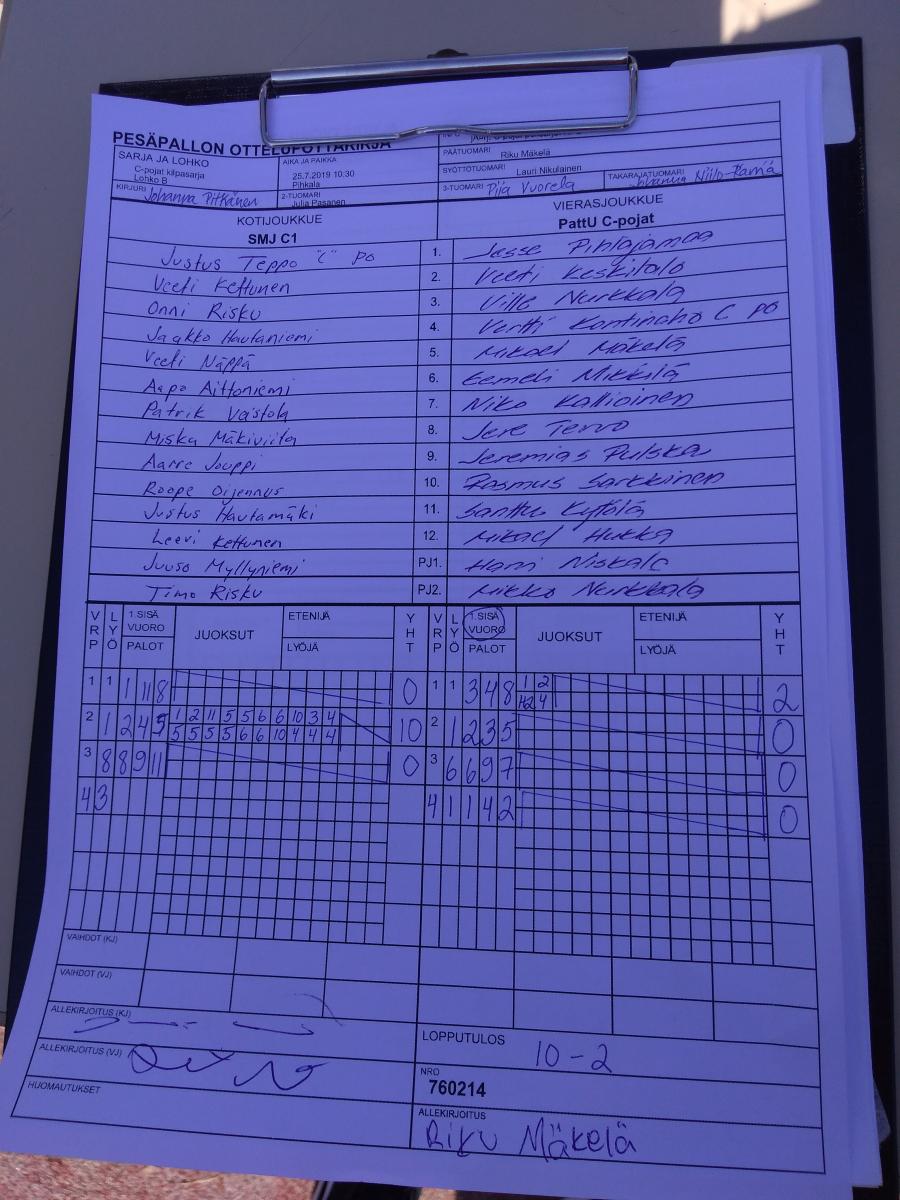 PESÄPALLON OTTELUPÖYTÄKIRJA
SARJA JA LOHKO
C-pojat kilpasarja
Lohko B
AIKA JA PAIKKA
25.7.2019 10:30
Pihkala
PÄÄTUOMARI Riku Mäkelä
SYÖTTÖTUOMARI Lauri Nikulainen
KIRJURI Johanna Pitkänen
2-TUOMARI
Julia Pasanen
3-TUOMARI Piia Vuorela
TAKARAJATUOMARI
KOTIJOUKKUE
SMJ C1
VIERASJOUKKUE
PattU C-pojat
Justus Teppo "C" po 1. Jesse Pihlajamaa
Veeti Kettunen 2. Veeti Keskitalo
Onni Risku 3. Ville Nurkkala
Jaakko Hautaniemi 4. Vertti Kontinaho C po
Veeti Näppä 5. Mikael Mäkelä
Aapo Aittoniemi 6. Eemeli Mikkilä
Patrik Vaistola 7. Niko Kallioinen
Miska Mäkiviita 8. Jere Tervo
Aarre Jouppi 9. Jeremias Pulska
Roope Oijennus 10. Rasmus Sarkkinen
Justus Hautamäki 11. Santtu Kyttölä
Leevi Kettunen 12. Mikael Hukka
Juuso Myllyniemi PJ1. Harri Niskala
Timo Risku PJ2. Mikko Nurkkala
VRP LYÖ 1.SISÄ VUORO PALOT JUOKSUT ETENIJÄ LYÖJÄ YHT VRP LYÖ 1.SISÄ VUORO PALOT JUOKSUT ETENIJÄ LYÖJÄ YHT
1 1 1 11 8 0 1 1 3 4 8 1 2 2
42 4
2 1 2 4 5 1 2 11 5 5 6 6 10 3 4 10 2 1 2 3 5 0
5 5 5 5 6 6 10 4 4 4
3 8 8 9 11 0 3 6 6 9 7 0
4 3 4 1 1 4 2 0
VAIHDOT (KJ)
VAIHDOT (VJ)
ALLEKIRJOITUS (KJ)
LOPPUTULOS 10-2
ALLEKIRJOITUS (VJ)
NRO
760214
HUOMAUTUKSET
ALLEKIRJOITUS
Riku Mäkelä